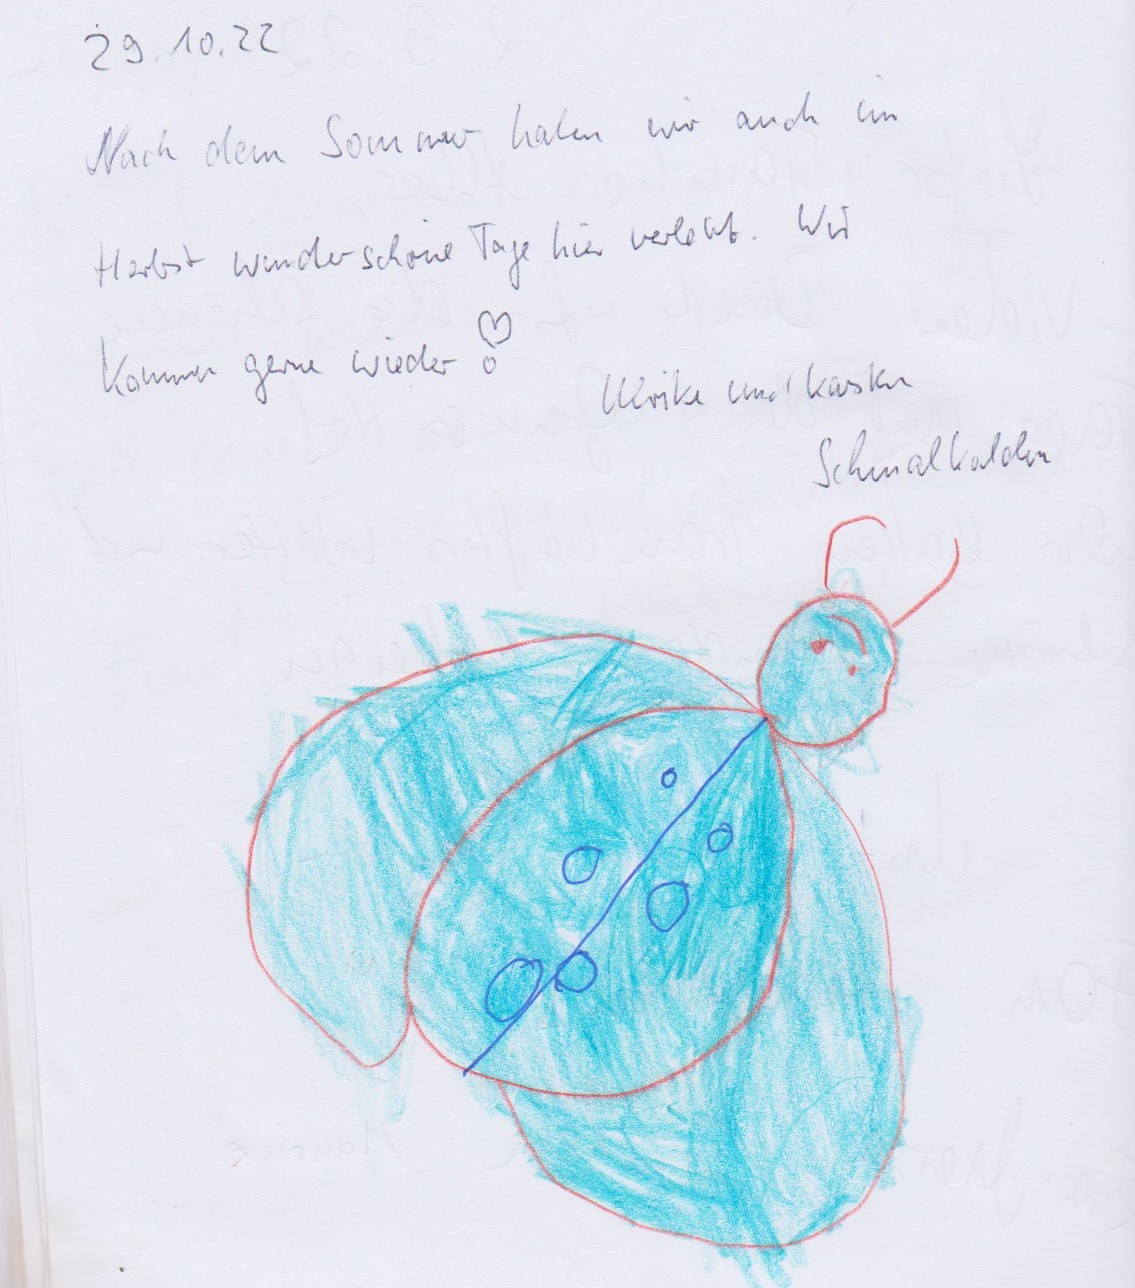 29.10.22
Nach dem Sommer haben wir auch im
Herbst wunderschöne Tage hier verlebt. Wir
kommen gerne wieder!
Ulrike und Karsten
Schmalkalden